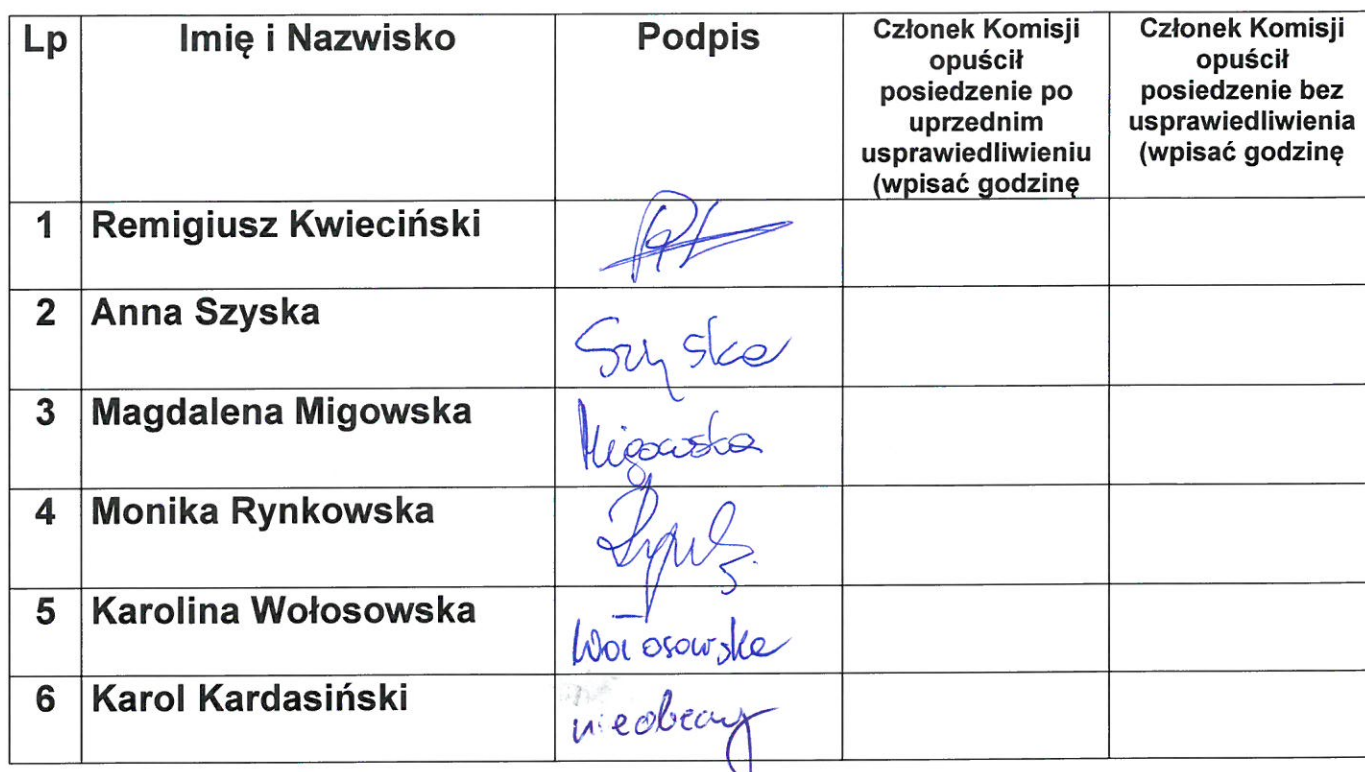 Lp Imię i Nazwisko Podpis Członek Komisji opuścił posiedzenie po uprzednim usprawiedliwieniu (wpisać godzinę Członek Komisji opuścił posiedzenie bez usprawiedliwienia (wpisać godzinę
1 Remigiusz Kwieciński
2 Anna Szyska Szyska
3 Magdalena Migowska Migowska
4 Monika Rynkowska
5 Karolina Wołosowska Wołosowska
6 Karol Kardasiński nieobecny